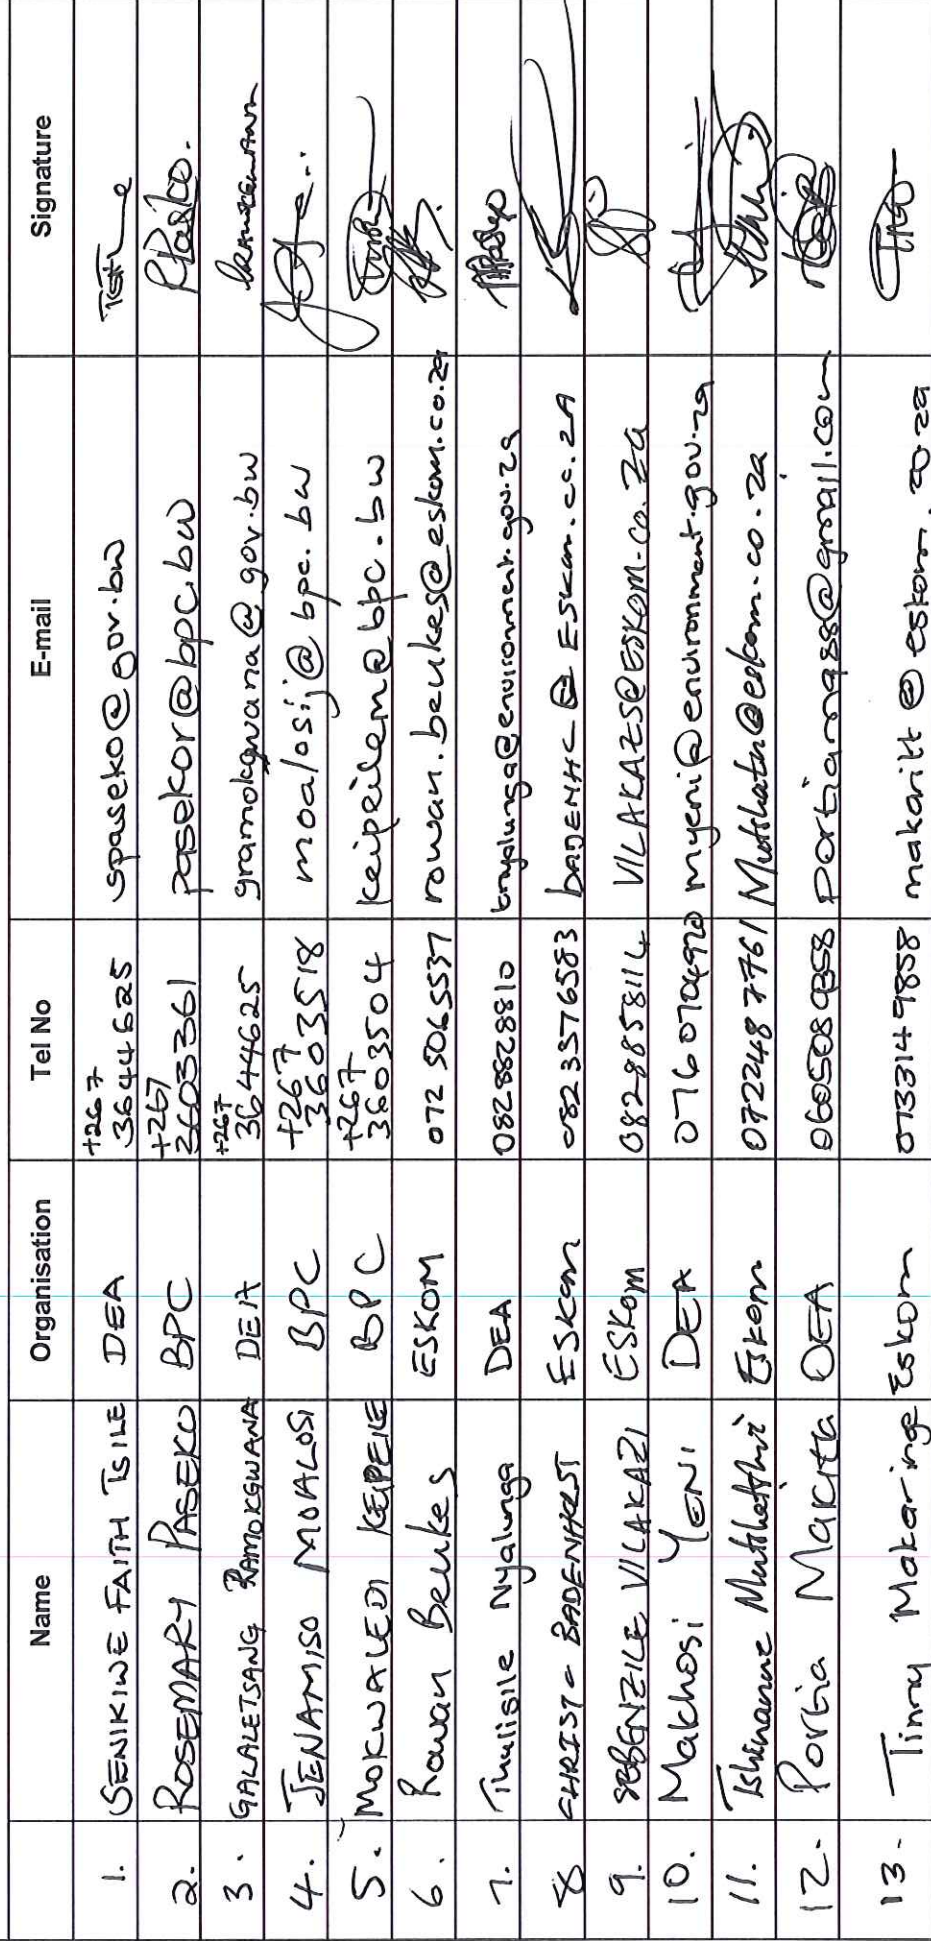 Name Organisation Tel No E-mail Signature
1. SENIKIWE FAITH TSILE DEA +267 3644625 spaseko@gov.bw
2. ROSEMARY PASEKO BPC +267 3603361 pasekor@bpc.bw
3. GALALETSANG RAMOKGWANA DEA +267 3644625 gramokgwana@gov.bw
4. JENAMISO MOALOSI BPC +267 3603518 moalosij@bpc.bw
5. MOKWALEDI KEIPEILE BPC +267 3603504 keipeilem@bpc.bw
6. Rowan Beukes ESKOM 072 5065537 rowan.beukes@eskom.co.za
7. Thulisile Nyalunga DEA 0828828810 tnyalunga@environment.gov.za
8 CHRISTO BADENHORST ESKom 0823576583 BADENHC@ESkom.co.ZA
9. SEBENZILE VILAKAZI ESKom 0828858114 VILAKAZS@ESKOM.co.Za
10. Makhosi YENI DEA 0760704920 myeni@environment.gov.za
11. Tshinanne Eskom 0722487761
12. Portia Makitla DEA 0605089358 portiamass@gmail.com
13. Timmy Makaringe Eskom 0733149858 makaritt@eskom.co.za